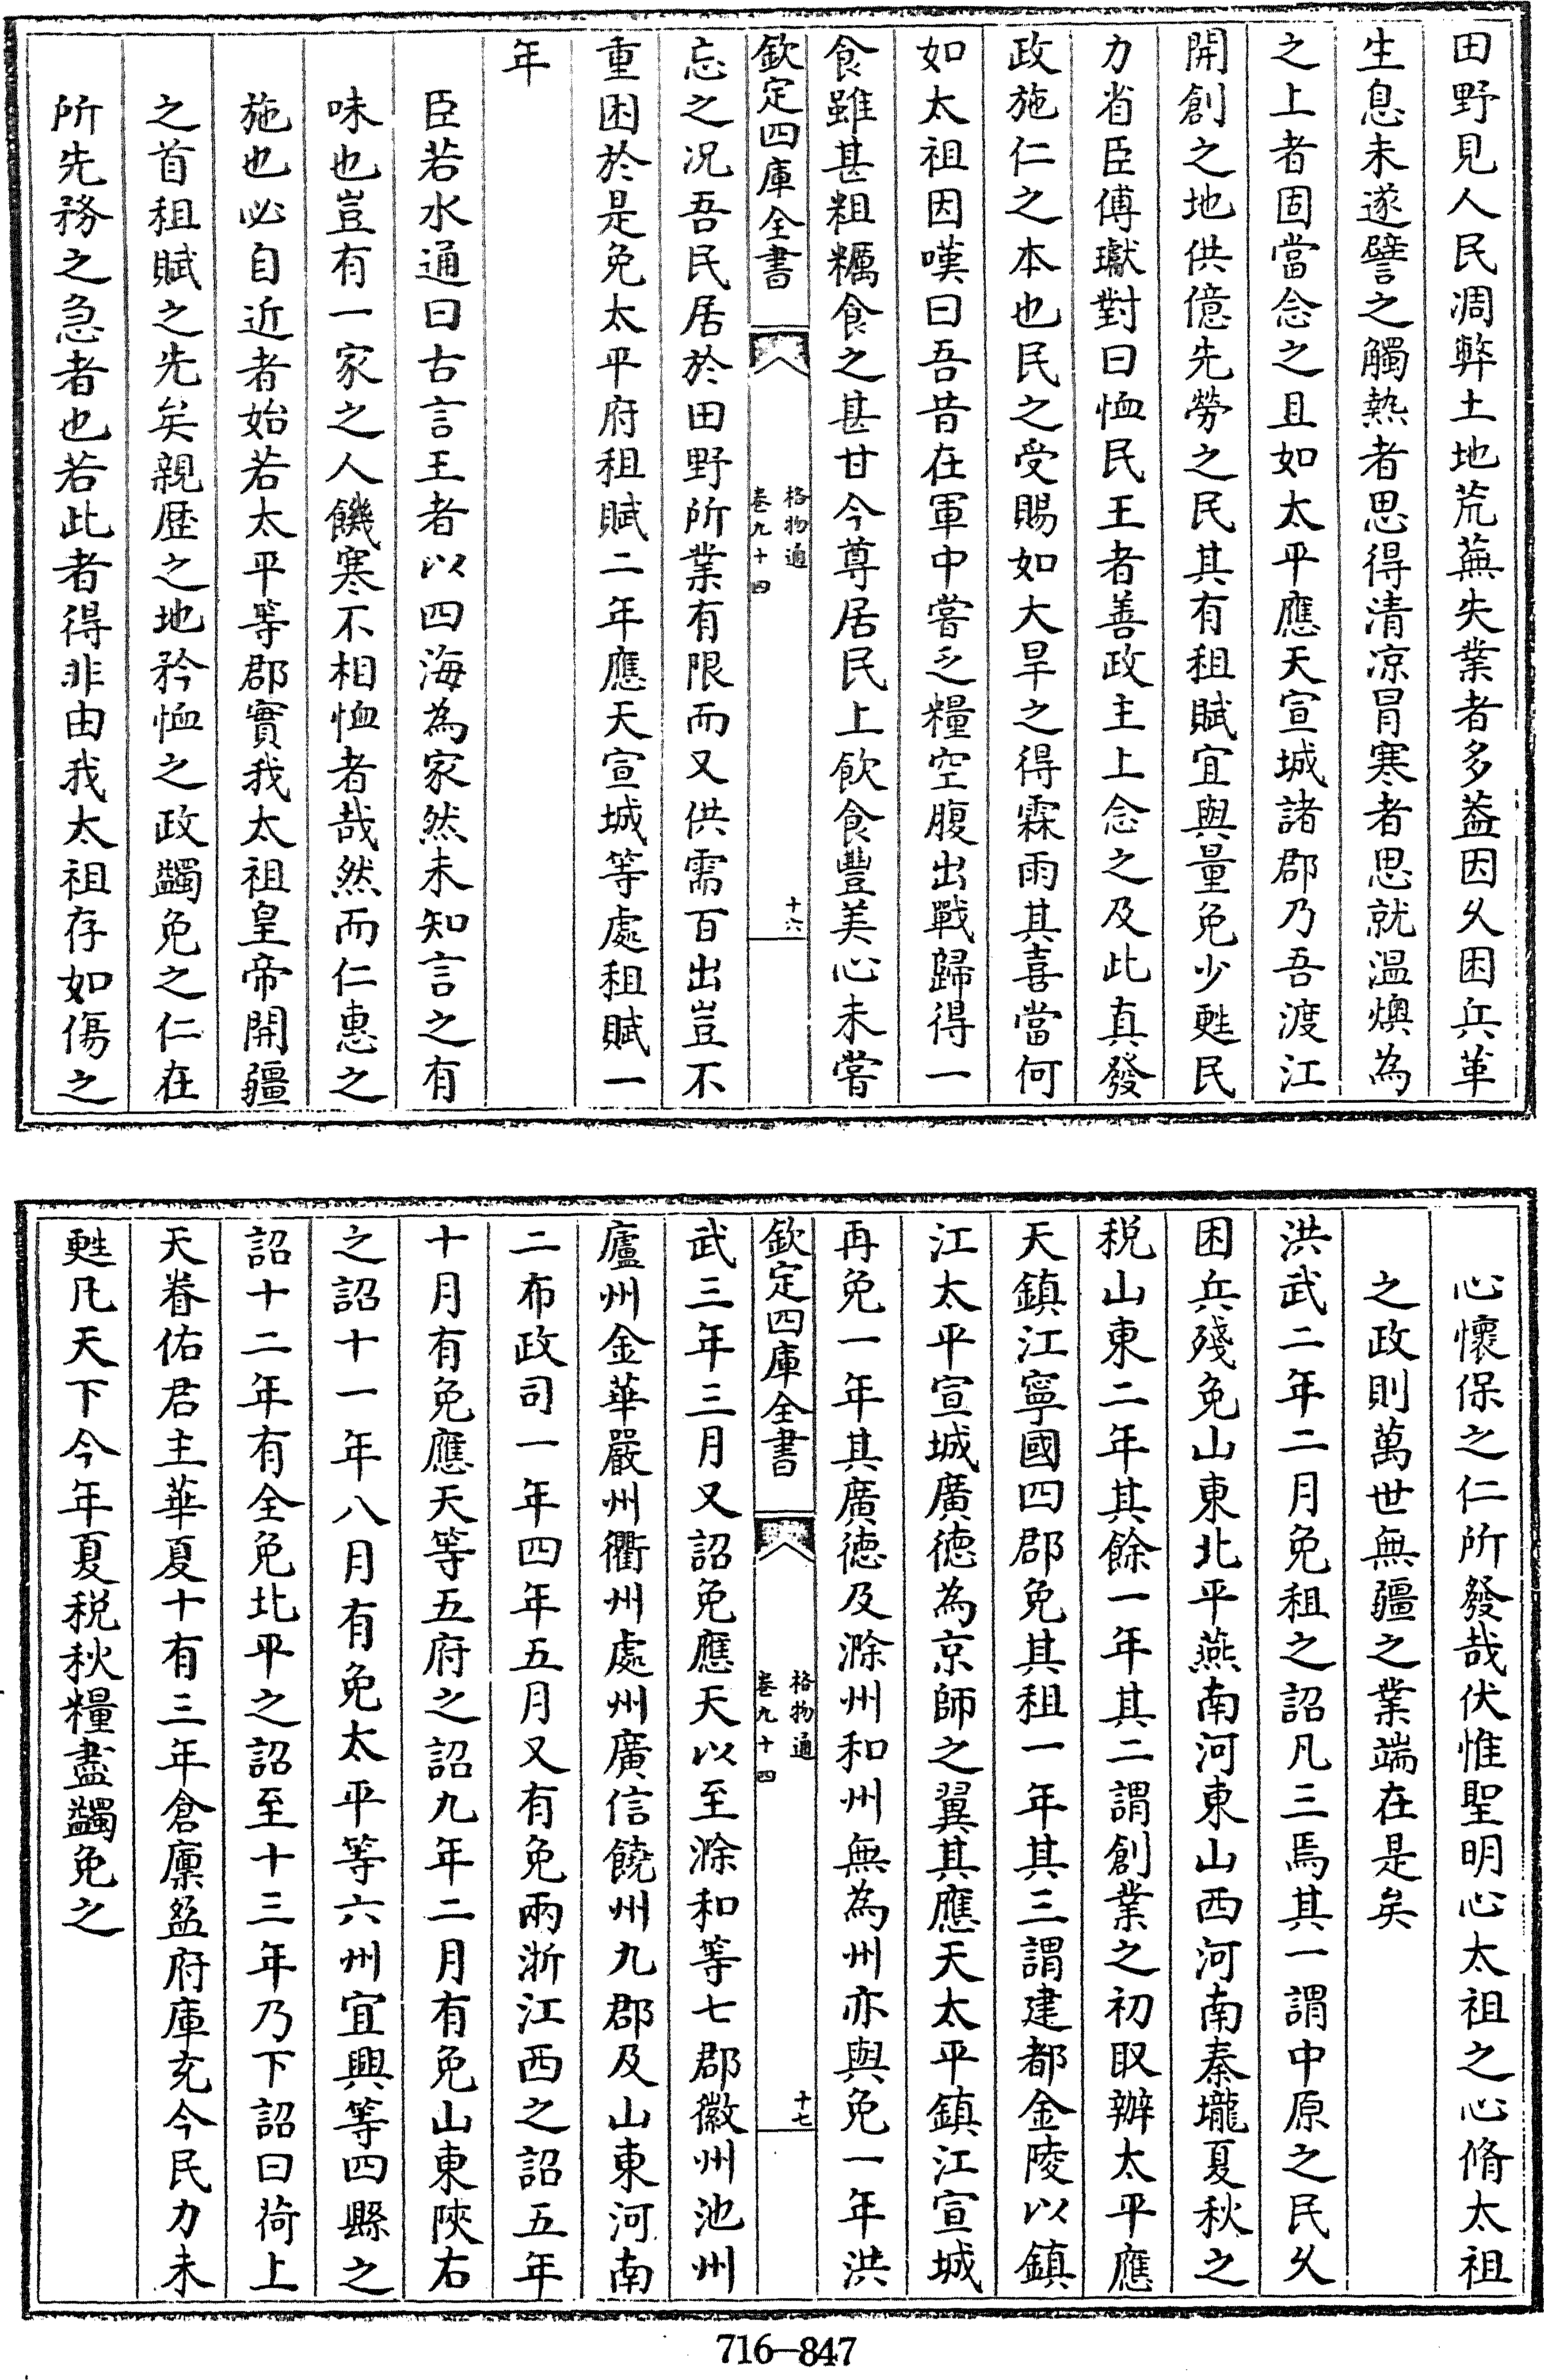 田野見人民凋弊土地荒蕪失業者多葢因乆困兵革
生息未遂譬之觸熱者思得清凉冒寒者思就温燠為
之上者固當念之且如太平應天宣城諸郡乃吾渡江
開創之地供億先勞之民其有租賦宜與量免少甦民
力省臣傅瓛對曰恤民王者善政主上念之及此真發
政施仁之本也民之受賜如大旱之得霖雨其喜當何
如太祖因嘆曰吾昔在軍中嘗乏糧空腹出戰歸得一
食雖甚粗糲食之甚甘今尊居民上飲食豐美心未嘗
欽定四庫全書
格物通
卷九十四
十六
忘之况吾民居於田野所業有限而又供需百出豈不
重困於是免太平府租賦二年應天宣城等處租賦一
年
臣若水通曰古言王者以四海為家然未知言之有
味也豈有一家之人饑寒不相恤者哉然而仁惠之
施也必自近者始若太平等郡實我太祖皇帝開疆
之首租賦之先矣親歴之地矜恤之政蠲免之仁在
所先務之急者也若此者得非由我太祖存如傷之
心懷保之仁所發哉伏惟聖明心太祖之心脩太祖
之政則萬世無疆之業端在是矣
洪武二年二月免租之詔凡三焉其一謂中原之民乆
困兵殘免山東北平燕南河東山西河南秦壠夏秋之
税山東二年其餘一年其二謂創業之初取辦太平應
天鎮江寧國四郡免其租一年其三謂建都金陵以鎮
江太平宣城廣徳為京師之翼其應天太平鎮江宣城
再免一年其廣徳及滁州和州無為州亦與免一年洪
欽定四庫全書
格物通
卷九十四
十七
武三年三月又詔免應天以至滁和等七郡徽州池州
廬州金華嚴州衢州處州廣信饒州九郡及山東河南
二布政司一年四年五月又有免兩浙江西之詔五年
十月有免應天等五府之詔九年二月有免山東陜右
之詔十一年八月有免太平等六州宜興等四縣之
詔十二年有全免北平之詔至十三年乃下詔曰荷上
天眷佑君主華夏十有三年倉廩盈府庫充今民力未
甦凡天下今年夏税秋糧盡蠲免之
716—847